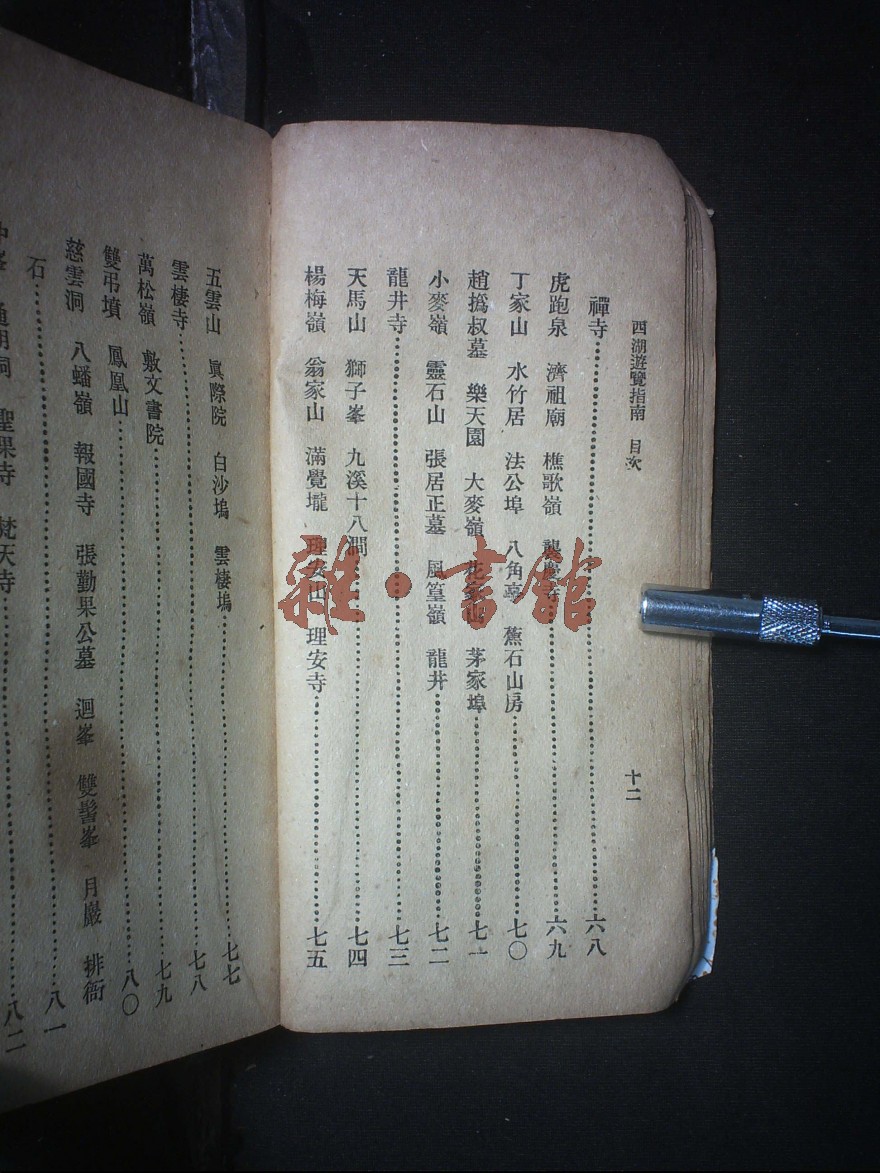 西湖遊覽指南 目次 十二
禪寺⋯⋯六八
虎跑泉 濟祖廟 樵歌嶺 襲慶寺⋯⋯六九
丁家山 水竹居 法公埠 八角亭 蕉石山房⋯⋯七〇
趙撝叔墓 樂天園 大麥嶺 花家山 茅家埠⋯⋯七一
小麥嶺 靈石山 張居正墓 風篁嶺 龍井⋯⋯七二
龍井寺⋯⋯七三
天馬山 獅子峯 九溪十八澗⋯⋯七四
楊梅嶺 翁家山 滿覺壠 理安山 理安寺⋯⋯七五
五雲山 眞際院 白沙塢 雲棲塢⋯⋯七七
雲棲寺⋯⋯七八
萬松嶺 敷文書院⋯⋯七九
雙吊墳 鳳凰山⋯⋯八〇
慈雲洞 八蟠嶺 報國寺 張勤果公墓 迴峯 雙髻峯 月巖 排衙
石⋯⋯八一
中峯 通明洞 聖果寺 梵天寺⋯⋯八二
雜·書館